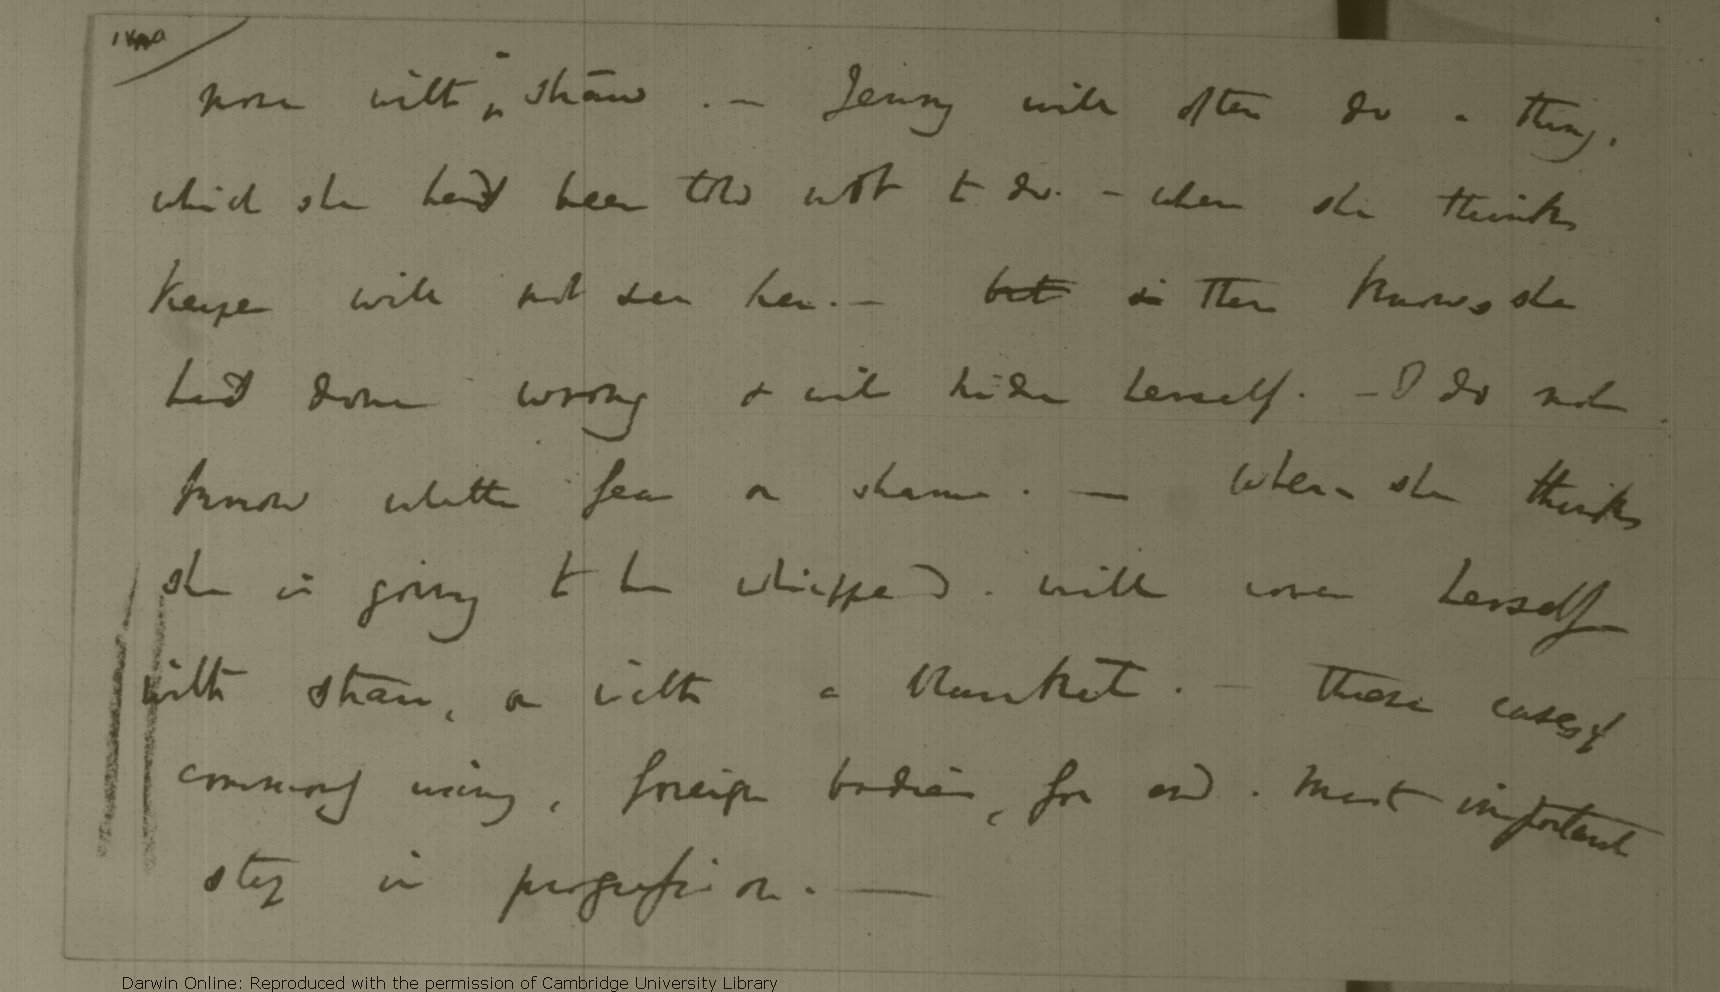 nose with a straw . — Jenny will often do a thing,
which she had been told not to do. — when she thinks
keeper will not see her. — but then knows she
had done wrong & will hide herself. — I do not
know whether fear or shame . — When she thinks
she is going to be whipped . will cover herself
with straw, or with a blanket . — these cases of
commonly using, foreign bodies, for end . most important
step in progression . —
Darwin Online: Reproduced with the permission of Cambridge University Library